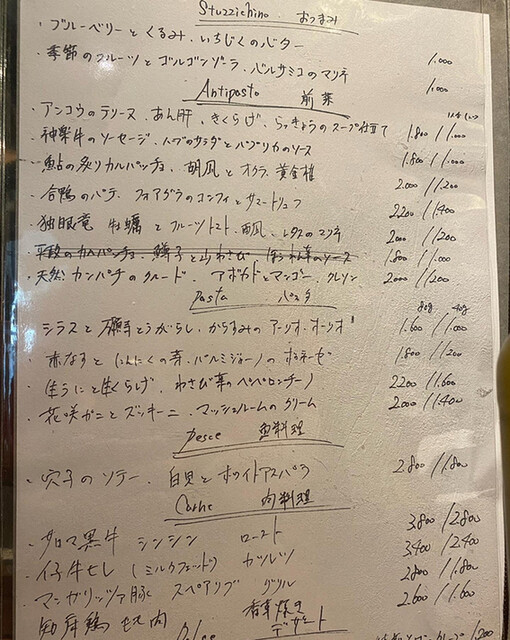 Stuzzichino. おつまみ
・ブルーベリーとくるみ、いちじくのバター 1.000
・季節のフルーツとゴルゴンゾーラ、バルサミコのマリネ 1.000
Antipasto 前菜
・アンコウのテリーヌ、あん肝、きくらげ、らっきょうのスープ仕立て 1.800/1.000
神楽牛のソーセージ、ハーブのサラダとパプリカのソース 1.800/1.000
・鮎の炙りカルパッチョ、胡瓜とオクラ、黄金 2.000/1.200
・合鴨のパテ、フォアグラのコンフィとサマートリュフ 2200/1.400
独眼竜牡蠣とフルーツトマト、胡瓜、のマリネ 2000/1.200
のカルパッチョ、と山わさび、ほうれん草のソース 1.800/1.000
・天然カンパチのクルード、アボカドとマンゴー、クレソン 2000/1.200
Pasta パスタ 80g 40g
・シラスと万願寺とうがらし、からすみのアーリオ・オーリオ 1.600/1.000
赤なすとにんにくの芽、パルミジャーノのボロネーゼ 1.800/1200
・生うにと生くらげ、わさび菜のペペロンチーノ 2200/1.600
・花咲かにとズッキーニ、マッシュルームのクリーム 2000/1.400
Pesce 魚料理
・穴子のソテー、白貝とホワイトアスパラ 2.800/1.800
Carne 肉料理
・サロマ黒牛 シンシン ロースト 3.800/2.800
・仔牛ヒレ(ミルクフェッド) カツレツ 3.400/2.400
・マンガリッツァ豚 スペアリブ グリル 2.800/1.800
知床鶏 もも肉 香草焼き 2.600/1.600
Dolce デザート